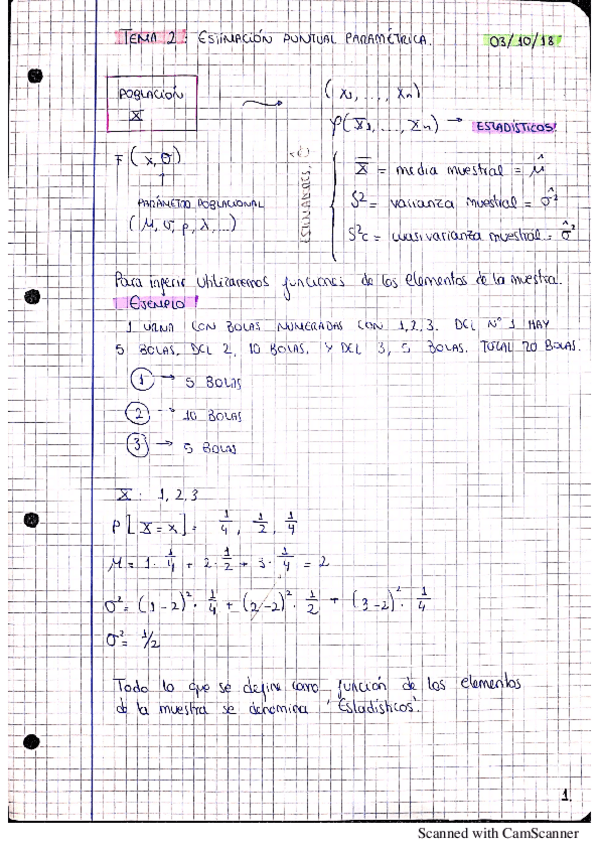 TEMA 2: ESTIMACIÓN PUNTUAL PARAMÉTRICA. 03/10/18
POBLACIÓN
X
(X1, ..., Xn)
φ(X1, ..., Xn) → ESTADÍSTICOS
F(x, θ)
↑
PARÁMETRO POBLACIONAL
(μ, σ, p, λ, ...)
ESTIMADORES
X̄ = media muestral = μ̂
S² = varianza muestral = σ̂²
S²c = cuasivarianza muestral = σ̂²
Para inferir utilizaremos funciones de los elementos de la muestra.
EJEMPLO
1 URNA CON BOLAS NUMERADAS CON 1, 2, 3. DEL Nº 1 HAY
5 BOLAS, DEL 2, 10 BOLAS, Y DEL 3, 5 BOLAS. TOTAL 20 BOLAS.
1 → 5 BOLAS
2 → 10 BOLAS
3 → 5 BOLAS
X: 1, 2, 3
P[X=x] = 1/4, 1/2, 1/4
μ = 1·1/4 + 2·1/2 + 3·1/4 = 2
σ² = (1-2)²·1/4 + (2-2)²·1/2 + (3-2)²·1/4
σ² = 1/2
Todo lo que se define como función de los elementos
de la muestra se denomina 'Estadísticos'.
1.
Scanned with CamScanner